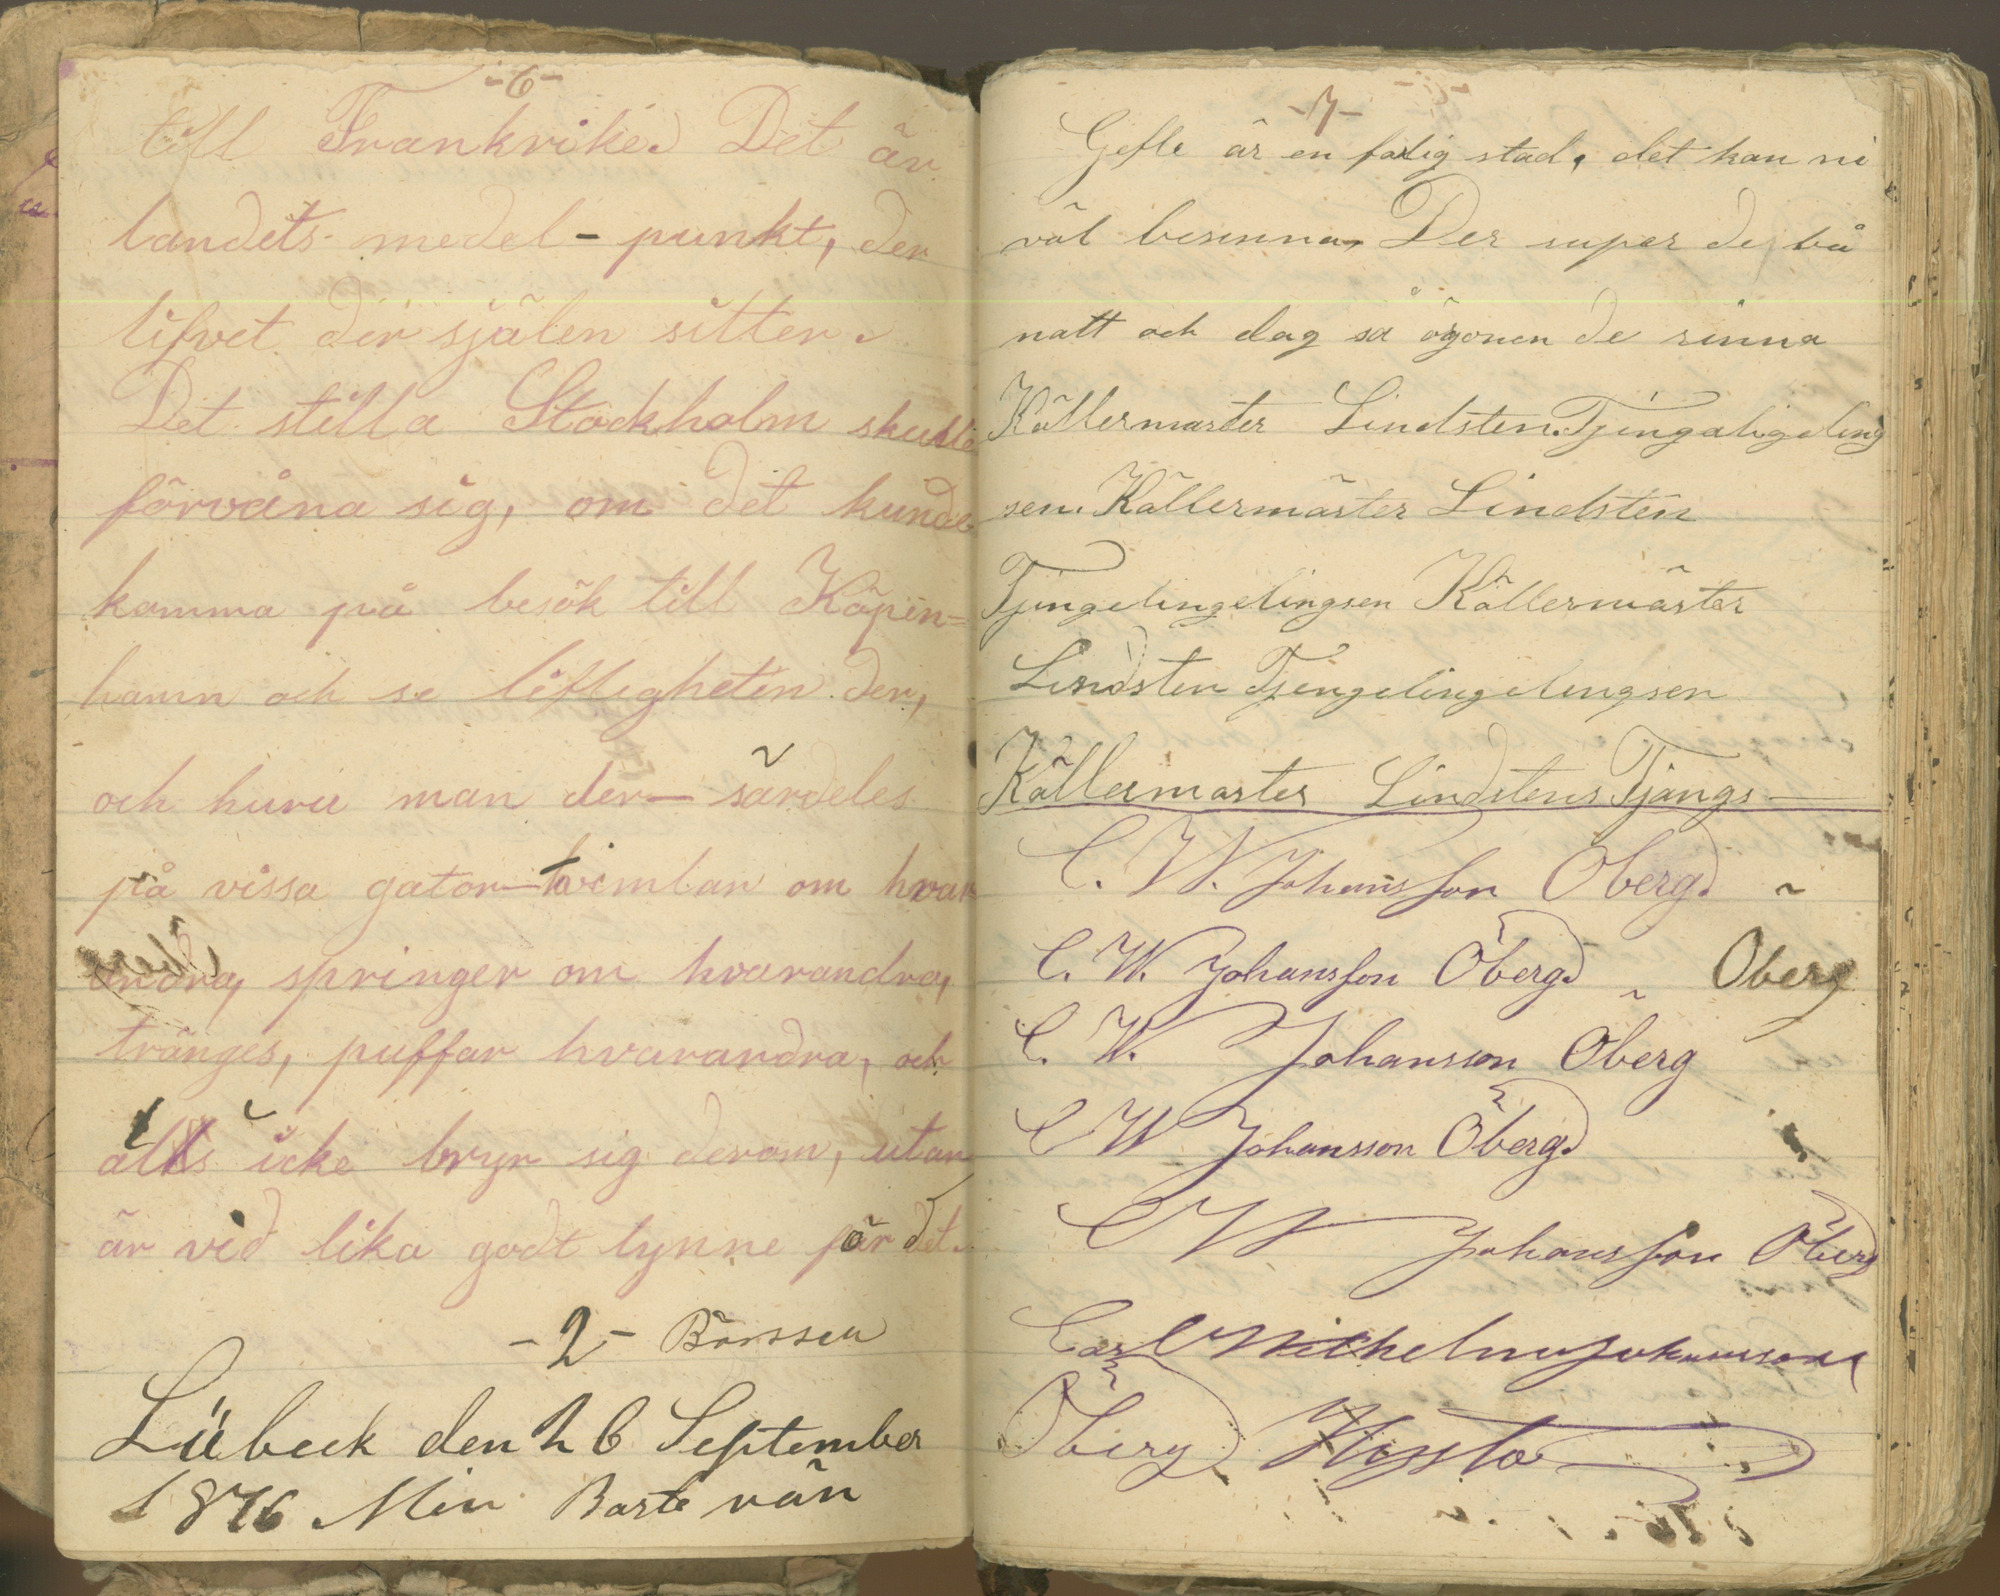 -6-
till Frankrike. Det är
landets medel-punkt, der
lifvet der själen sitter.
Det stilla Stockholm skulle
förvåna sig, om det kunde
komma på besök till Köpen=
hamn och se lifligheten der,
och huru man der— särdeles
på vissa gator— vimlar om hvar
andra, springer om hvarandra,
tränges, puffar hvarandra, och
alls icke bryr sig derom, utan
är vid lika godt lynne för det.
-2- Börssen
Lübeck den 26 September
1876 Min Baste vän
-7-
Gefle är en farlig stad, det kan ni
väl besinna, Der super de bå
natt och dag så ögonen de rinna
Källermäster Lindsten Tjingaligeling
sen. Källermäster Lindsten
Tjingelingelingsen Källermäster
Lindsten Tjingelingelingsen
Källermäster Lindstens Tjangs—
C. W. Johansson Öberg.
C. W. Johansson Öberg. Oberg
C. W. Johansson Öberg
C W Johansson Öberg.
C W Johansson Öberg
Carl Wilhelm Johansson
Öberg